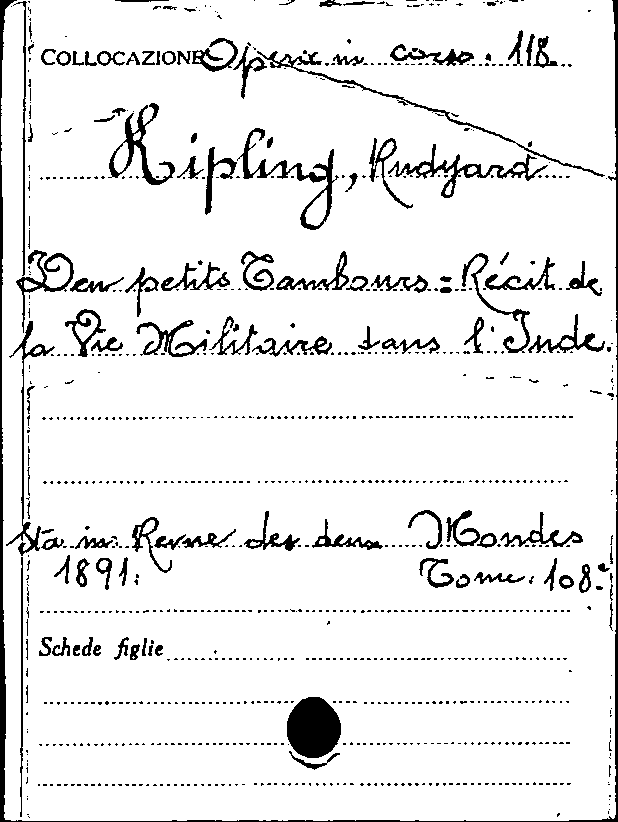 COLLOCAZIONE Opere in corso. 118
Kipling, Rudyard
Deux petits Tambours = Récit de
la Vie Militaire dans l'Inde.
Sta in: Revue des deux Mondes
1891. Tome. 108.e
Schede figlie